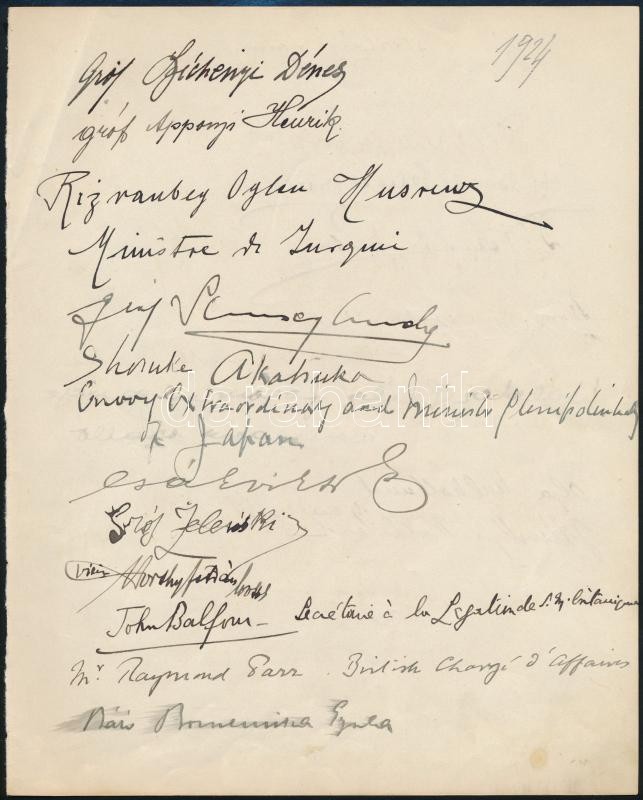 1924
gróf Széchenyi Dénes
gróf Apponyi Henrik
Rizvanbey Oglou Husrew
Ministre de Turquie
gróf
Shosuke Akatsuka
Envoy Extraordinary and Minister Plenipotentiary
of Japan
darabanth
Csáky
Gróf Zeleński
John Balfour Secrétaire à la Légation de S.M. britannique
Mr Raymond Parr. British Chargé d'Affaires
Báró Bornemisza Gyula